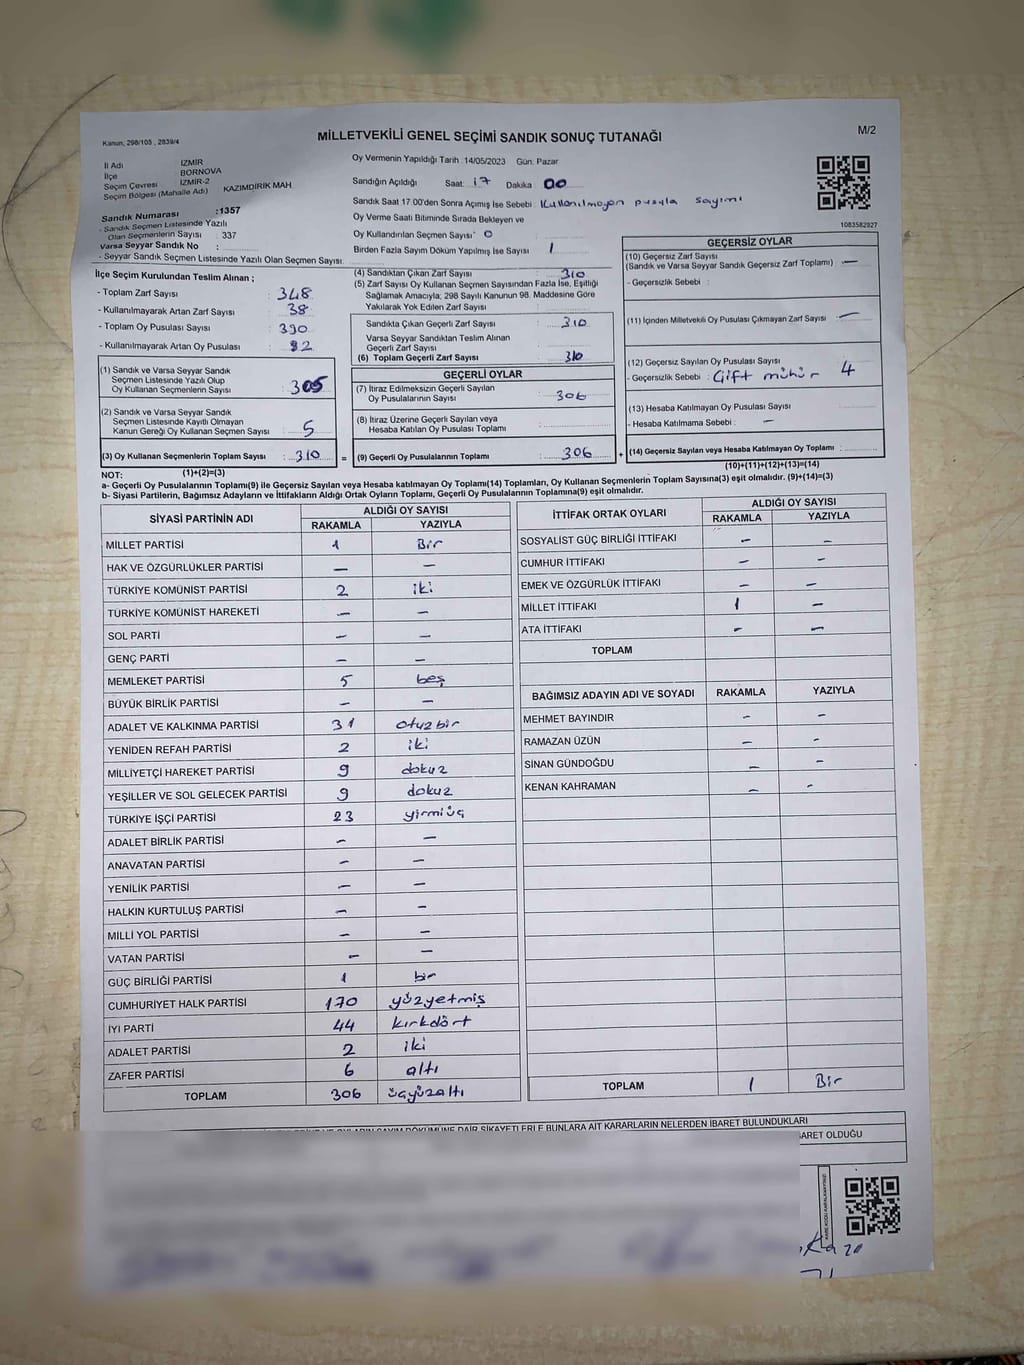 Kanun, 298/105 , 2839/4
MİLLETVEKİLİ GENEL SEÇİMİ SANDIK SONUÇ TUTANAĞI
M/2
İl Adı İZMİR
İlçe BORNOVA
Seçim Çevresi İZMİR-2
Seçim Bölgesi (Mahalle Adı) KAZIMDİRİK MAH
Sandık Numarası :1357
- Sandık Seçmen Listesinde Yazılı
Olan Seçmenlerin Sayısı : 337
Varsa Seyyar Sandık No :
- Seyyar Sandık Seçmen Listesinde Yazılı Olan Seçmen Sayısı:
Oy Vermenin Yapıldığı Tarih :14/05/2023 Gün: Pazar
Sandığın Açıldığı Saat: 17 Dakika 00
Sandık Saat 17.00'den Sonra Açımış İse Sebebi: Kullanılmayan pusula sayımı
Oy Verme Saati Bitiminde Sırada Bekleyen ve
Oy Kullandırılan Seçmen Sayısı: 0
Birden Fazla Sayım Döküm Yapılmış İse Sayısı 1
1083582827
İlçe Seçim Kurulundan Teslim Alınan ;
- Toplam Zarf Sayısı : 348
- Kullanılmayarak Artan Zarf Sayısı : 38
- Toplam Oy Pusulası Sayısı : 390
- Kullanılmayarak Artan Oy Pusulası : 82
(1) Sandık ve Varsa Seyyar Sandık
Seçmen Listesinde Yazılı Olup
Oy Kullanan Seçmenlerin Sayısı : 305
(2) Sandık ve Varsa Seyyar Sandık
Seçmen Listesinde Kayıtlı Olmayan
Kanun Gereği Oy Kullanan Seçmen Sayısı : 5
(3) Oy Kullanan Seçmenlerin Toplam Sayısı : 310 =
(4) Sandıktan Çıkan Zarf Sayısı : 310
(5) Zarf Sayısı Oy Kullanan Seçmen Sayısından Fazla İse, Eşitliği
Sağlamak Amacıyla; 298 Sayılı Kanunun 98. Maddesine Göre
Yakılarak Yok Edilen Zarf Sayısı :
Sandıkta Çıkan Geçerli Zarf Sayısı : 310
Varsa Seyyar Sandıktan Teslim Alınan
Geçerli Zarf Sayısı :
(6) Toplam Geçerli Zarf Sayısı : 310
GEÇERLİ OYLAR
(7) İtiraz Edilmeksizin Geçerli Sayılan
Oy Pusulalarının Sayısı : 306
(8) İtiraz Üzerine Geçerli Sayılan veya
Hesaba Katılan Oy Pusulası Toplamı :
(9) Geçerli Oy Pusulalarının Toplamı : 306 +
GEÇERSİZ OYLAR
(10) Geçersiz Zarf Sayısı
(Sandık ve Varsa Seyyar Sandık Geçersiz Zarf Toplamı) : —
- Geçersizlik Sebebi :
(11) İçinden Milletvekili Oy Pusulası Çıkmayan Zarf Sayısı : —
(12) Geçersiz Sayılan Oy Pusulası Sayısı : 4
- Geçersizlik Sebebi : Çift mühür
(13) Hesaba Katılmayan Oy Pusulası Sayısı :
- Hesaba Katılmama Sebebi : —
(14) Geçersiz Sayılan veya Hesaba Katılmayan Oy Toplamı :
NOT: (1)+(2)=(3) (10)+(11)+(12)+(13)=(14)
a- Geçerli Oy Pusulalarının Toplamı(9) ile Geçersiz Sayılan veya Hesaba katılmayan Oy Toplamı(14) Toplamları, Oy Kullanan Seçmenlerin Toplam Sayısına(3) eşit olmalıdır. (9)+(14)=(3)
b- Siyasi Partilerin, Bağımsız Adayların ve İttifakların Aldığı Ortak Oyların Toplamı, Geçerli Oy Pusulalarının Toplamına(9) eşit olmalıdır.
SİYASİ PARTİNİN ADI ALDIĞI OY SAYISI
RAKAMLA YAZIYLA
MİLLET PARTİSİ 1 Bir
HAK VE ÖZGÜRLÜKLER PARTİSİ — —
TÜRKİYE KOMÜNİST PARTİSİ 2 iki
TÜRKİYE KOMÜNİST HAREKETİ — —
SOL PARTİ — —
GENÇ PARTİ — —
MEMLEKET PARTİSİ 5 beş
BÜYÜK BİRLİK PARTİSİ — —
ADALET VE KALKINMA PARTİSİ 31 otuzbir
YENİDEN REFAH PARTİSİ 2 iki
MİLLİYETÇİ HAREKET PARTİSİ 9 dokuz
YEŞİLLER VE SOL GELECEK PARTİSİ 9 dokuz
TÜRKİYE İŞÇİ PARTİSİ 23 yirmiüç
ADALET BİRLİK PARTİSİ — —
ANAVATAN PARTİSİ — —
YENİLİK PARTİSİ — —
HALKIN KURTULUŞ PARTİSİ — —
MİLLİ YOL PARTİSİ — —
VATAN PARTİSİ — —
GÜÇ BİRLİĞİ PARTİSİ 1 bir
CUMHURİYET HALK PARTİSİ 170 yüzyetmiş
İYİ PARTİ 44 kırkdört
ADALET PARTİSİ 2 iki
ZAFER PARTİSİ 6 altı
TOPLAM 306 üçyüzaltı
İTTİFAK ORTAK OYLARI ALDIĞI OY SAYISI
RAKAMLA YAZIYLA
SOSYALİST GÜÇ BİRLİĞİ İTTİFAKI — —
CUMHUR İTTİFAKI — —
EMEK VE ÖZGÜRLÜK İTTİFAKI — —
MİLLET İTTİFAKI 1 —
ATA İTTİFAKI — —
TOPLAM
BAĞIMSIZ ADAYIN ADI VE SOYADI RAKAMLA YAZIYLA
MEHMET BAYINDIR — —
RAMAZAN ÜZÜN — —
SİNAN GÜNDOĞDU — —
KENAN KAHRAMAN — —
TOPLAM 1 Bir
DÖKÜMÜNE DAİR ŞİKAYETLERLE BUNLARA AİT KARARLARIN NELERDEN İBARET BULUNDUKLARI
BARET OLDUĞU